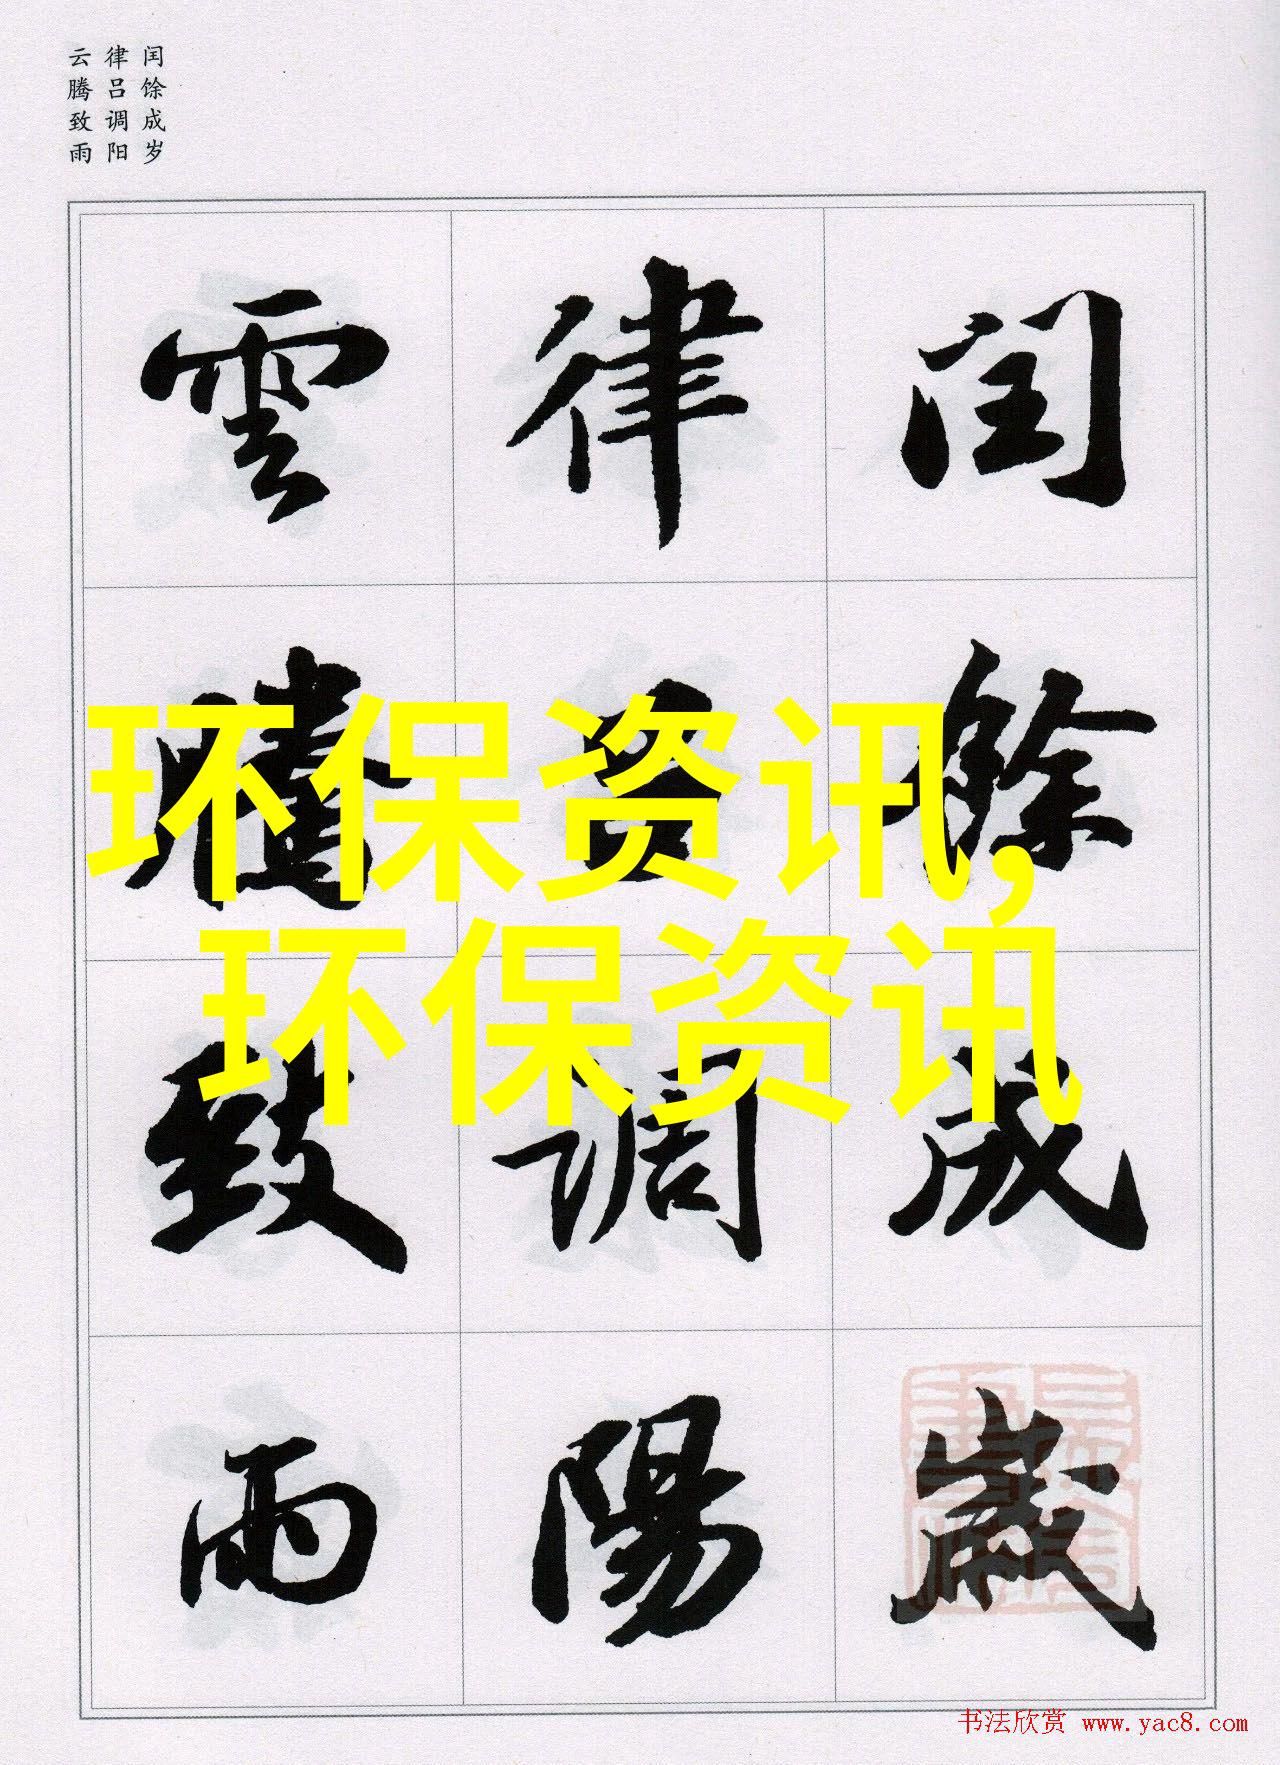 闰馀成岁
律吕调阳
云腾致雨
闰餘成歲
律吕調陽
雲騰致雨
环保资讯,
环保资讯
书法欣赏 www.yac8.com